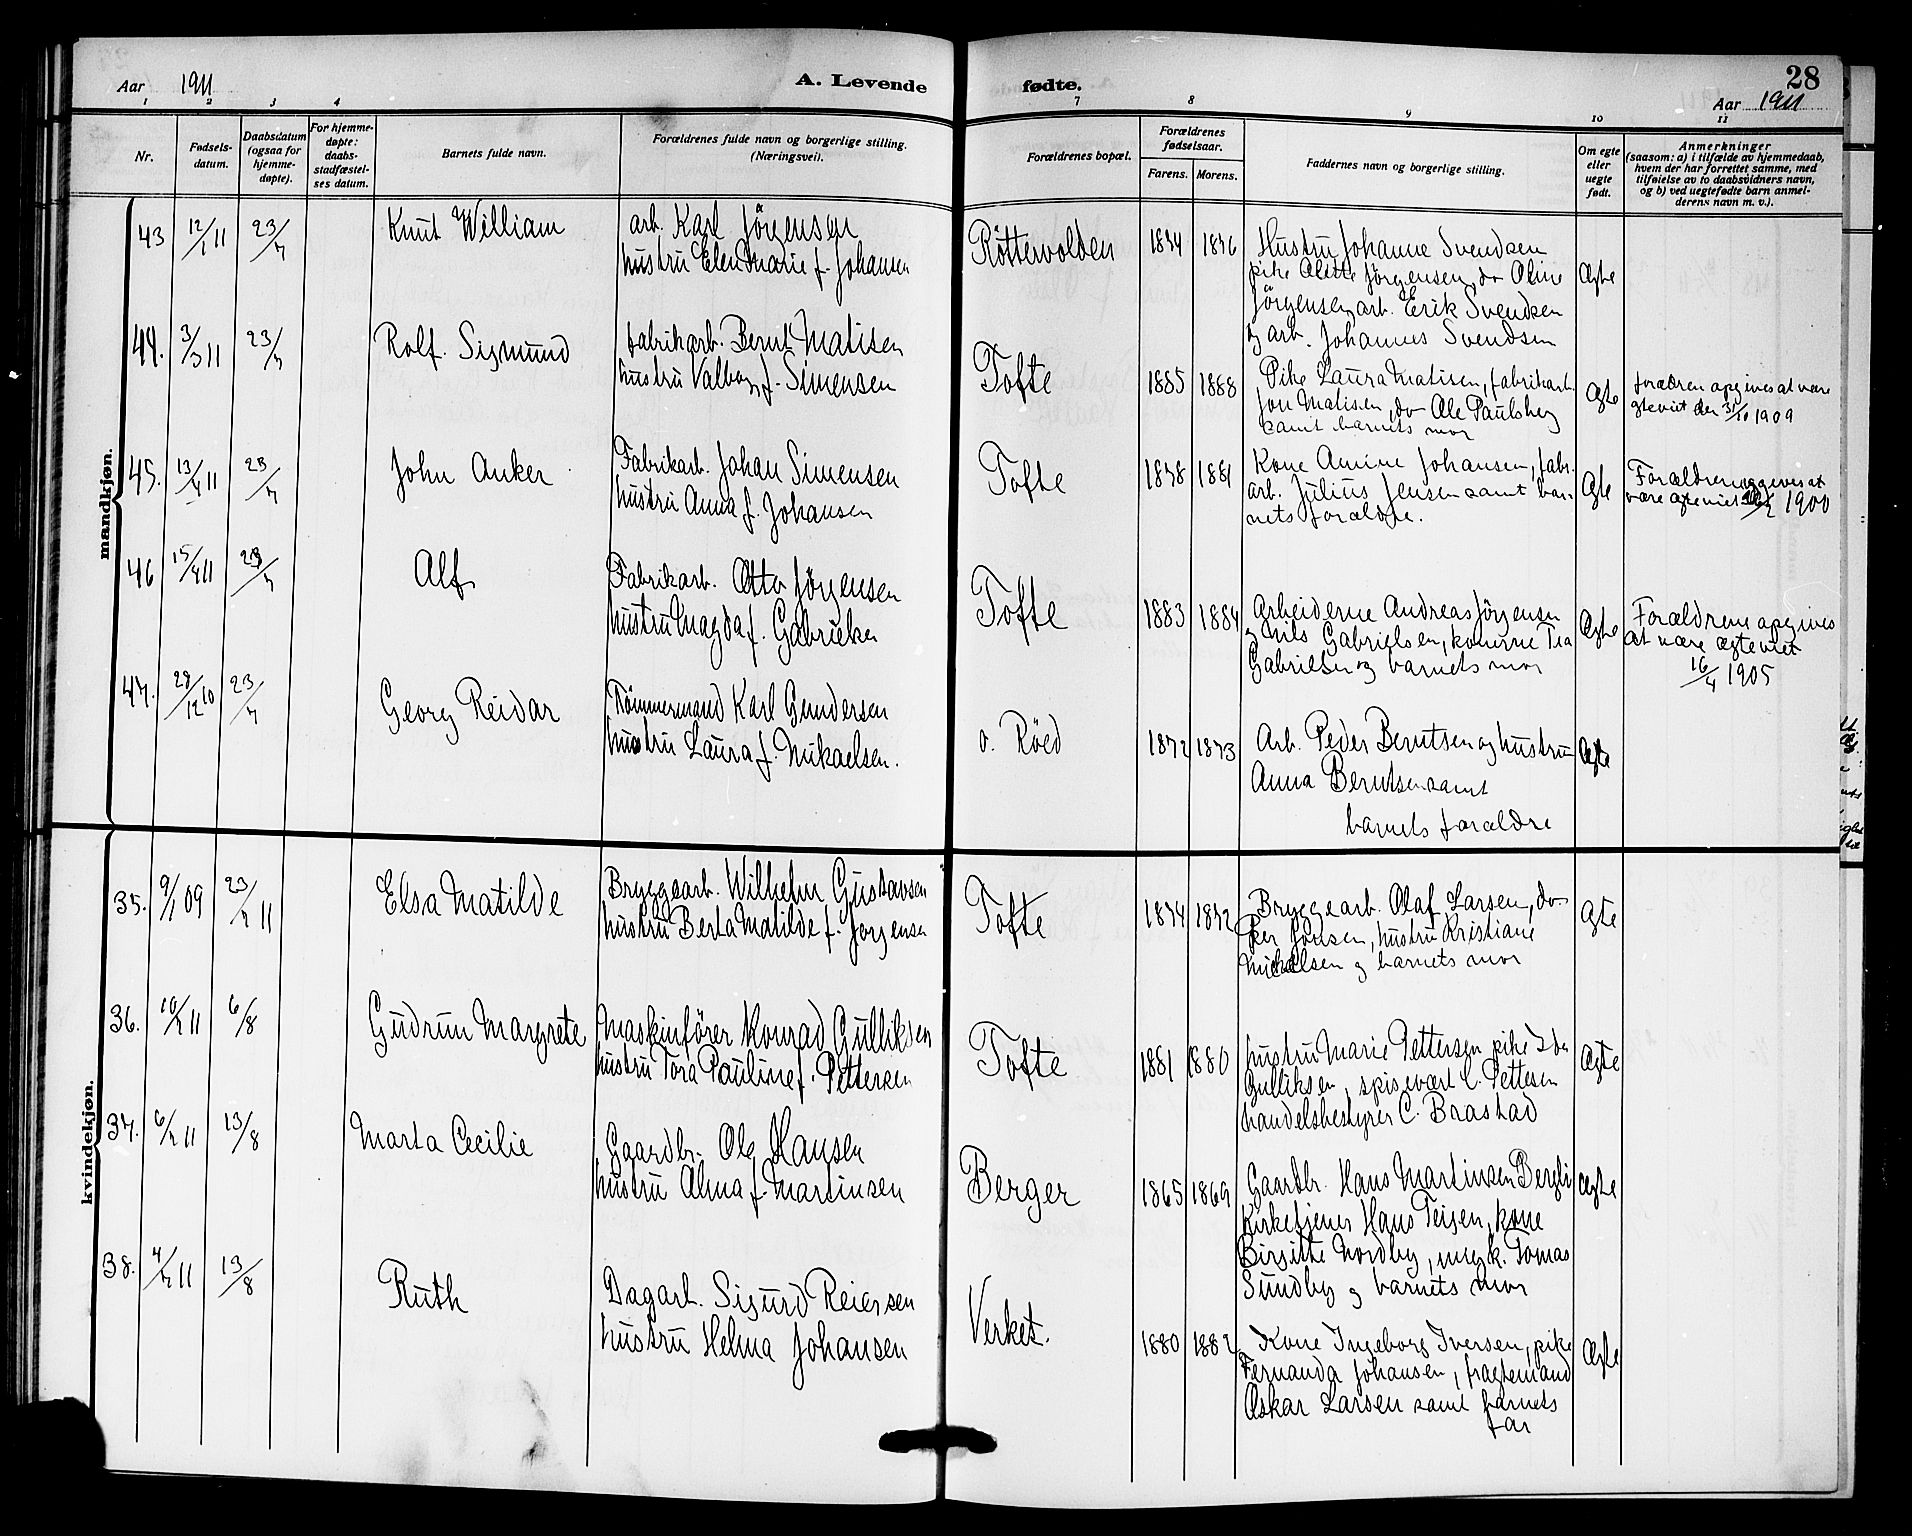 Aar 1911
A. Levende fødte.
28
Aar 1911
1 2 3 4 7 8 9 10 11
Nr.
Fødsels-
datum.
Daabsdatum
(ogsaa for
hjemme-
døpte).
For hjemme-
døpte:
daabs-
stadfæstel-
ses datum.
Barnets fulde navn.
Forældrenes fulde navn og borgerlige stilling.
(Næringsvei).
Forældrenes bopæl.
Forældrenes
fødselsaar.
Farens. Morens.
Faddernes navn og borgerlige stilling.
Om egte
eller
uegte
født.
Anmerkninger
(saasom: a) i tilfælde av hjemmedaab,
hvem der har forrettet samme, med
tilføielse av to daabsvidners navn,
og b) ved uegtefødte barn anmel-
derens navn m. v.).
mandkjøn.
43 12/1 11 23/7 Knut William
arb. Karl Jörgensen
hustru Elen Marie f. Johansen
Röttervolden 1874 1876
Hustru Johanne Svendsen
pike Alette Jörgensen, do Oline
Jörgensen, arb. Erik Svendsen
og arb. Johannes Svendsen
Ægte
44. 3/3 11 23/7 Rolf Sigmund
fabrikarb. Bernt Matisen
hustru Valborg f. Simensen
Tofte 1885 1888
Pike Laura Matisen, fabrikarb.
Jon Matisen, do Ole Paulsberg
samt barnets mor
Ægte
forældren opgives at være
gteviet den 31/10 1909
45. 13/4 11 23/7 John Anker
Fabrikarb. Johan Simensen
hustru Anna f. Johansen
Tofte 1878 1881
Kone Amine Johansen, fabr.
arb. Julius Jensen samt bar-
nets forældre.
Ægte
Forældren opgives at
være ægteviet 1900
46 15/4 11 23/7 Alf
Fabrikarb. Otto Jörgensen
hustru Magda f. Gabrielsen
Tofte 1883 1884
Arbeiderne Andreas Jörgensen
og Nils Gabrielsen, konerne Tea
Gabrielsen og barnets mor
Ægte
Forældrene opgives
at være ægteviet
16/4 1905
47. 28/12 10 23/7 Georg Reidar
Tömmermand Karl Gundersen
hustru Laura f. Mikaelsen.
o. Röed 1872 1873
Arb. Peder Berntsen og hustru
Anna Berntsen samt
barnets forældre
Ægte
kvindekjøn.
35. 9/1 09 23/7 11 Elsa Matilde
Bryggearb. Wilhelm Gustavsen
hustru Berta Matilde f. Jorgensen
Tofte 1874 1872
Bryggearb. Olaf Larsen, do
Per Jonsen, hustru Kristiane
Mickelsen og barnets mor
Ægte
36. 10/2 11 6/8 Gudrun Margrete
Maskinförer Konrad Gulliksen
hustru Tora Pauline f. Pettersen
Tofte 1881 1880
hustru Marie Pettersen pike Ida
Gulliksen, spisevært C. Pettesen
handelsbestyrer C. Brastad
Ægte
37. 6/2 11 13/8 Marta Cecilie
Gaardbr. Ole Hansen
hustru Alma f. Martinsen
Berger 1865 1869
Gaardbr. Hans Martinsen Bergli
Kirketjener Hans Teigen, kone
Birgitte Nordby, ungk. Tomas
Sundby og barnets mor
Ægte
38. 4/7 11 13/8 Ruth
Dagarb. Sigurd Reiersen
hustru Helma Johansen
Verket. 1880 1882
Kone Ingeborg Iversen, pike
Fernanda Johansen, fragtemand
Oskar Larsen samt barnets
far
Ægte